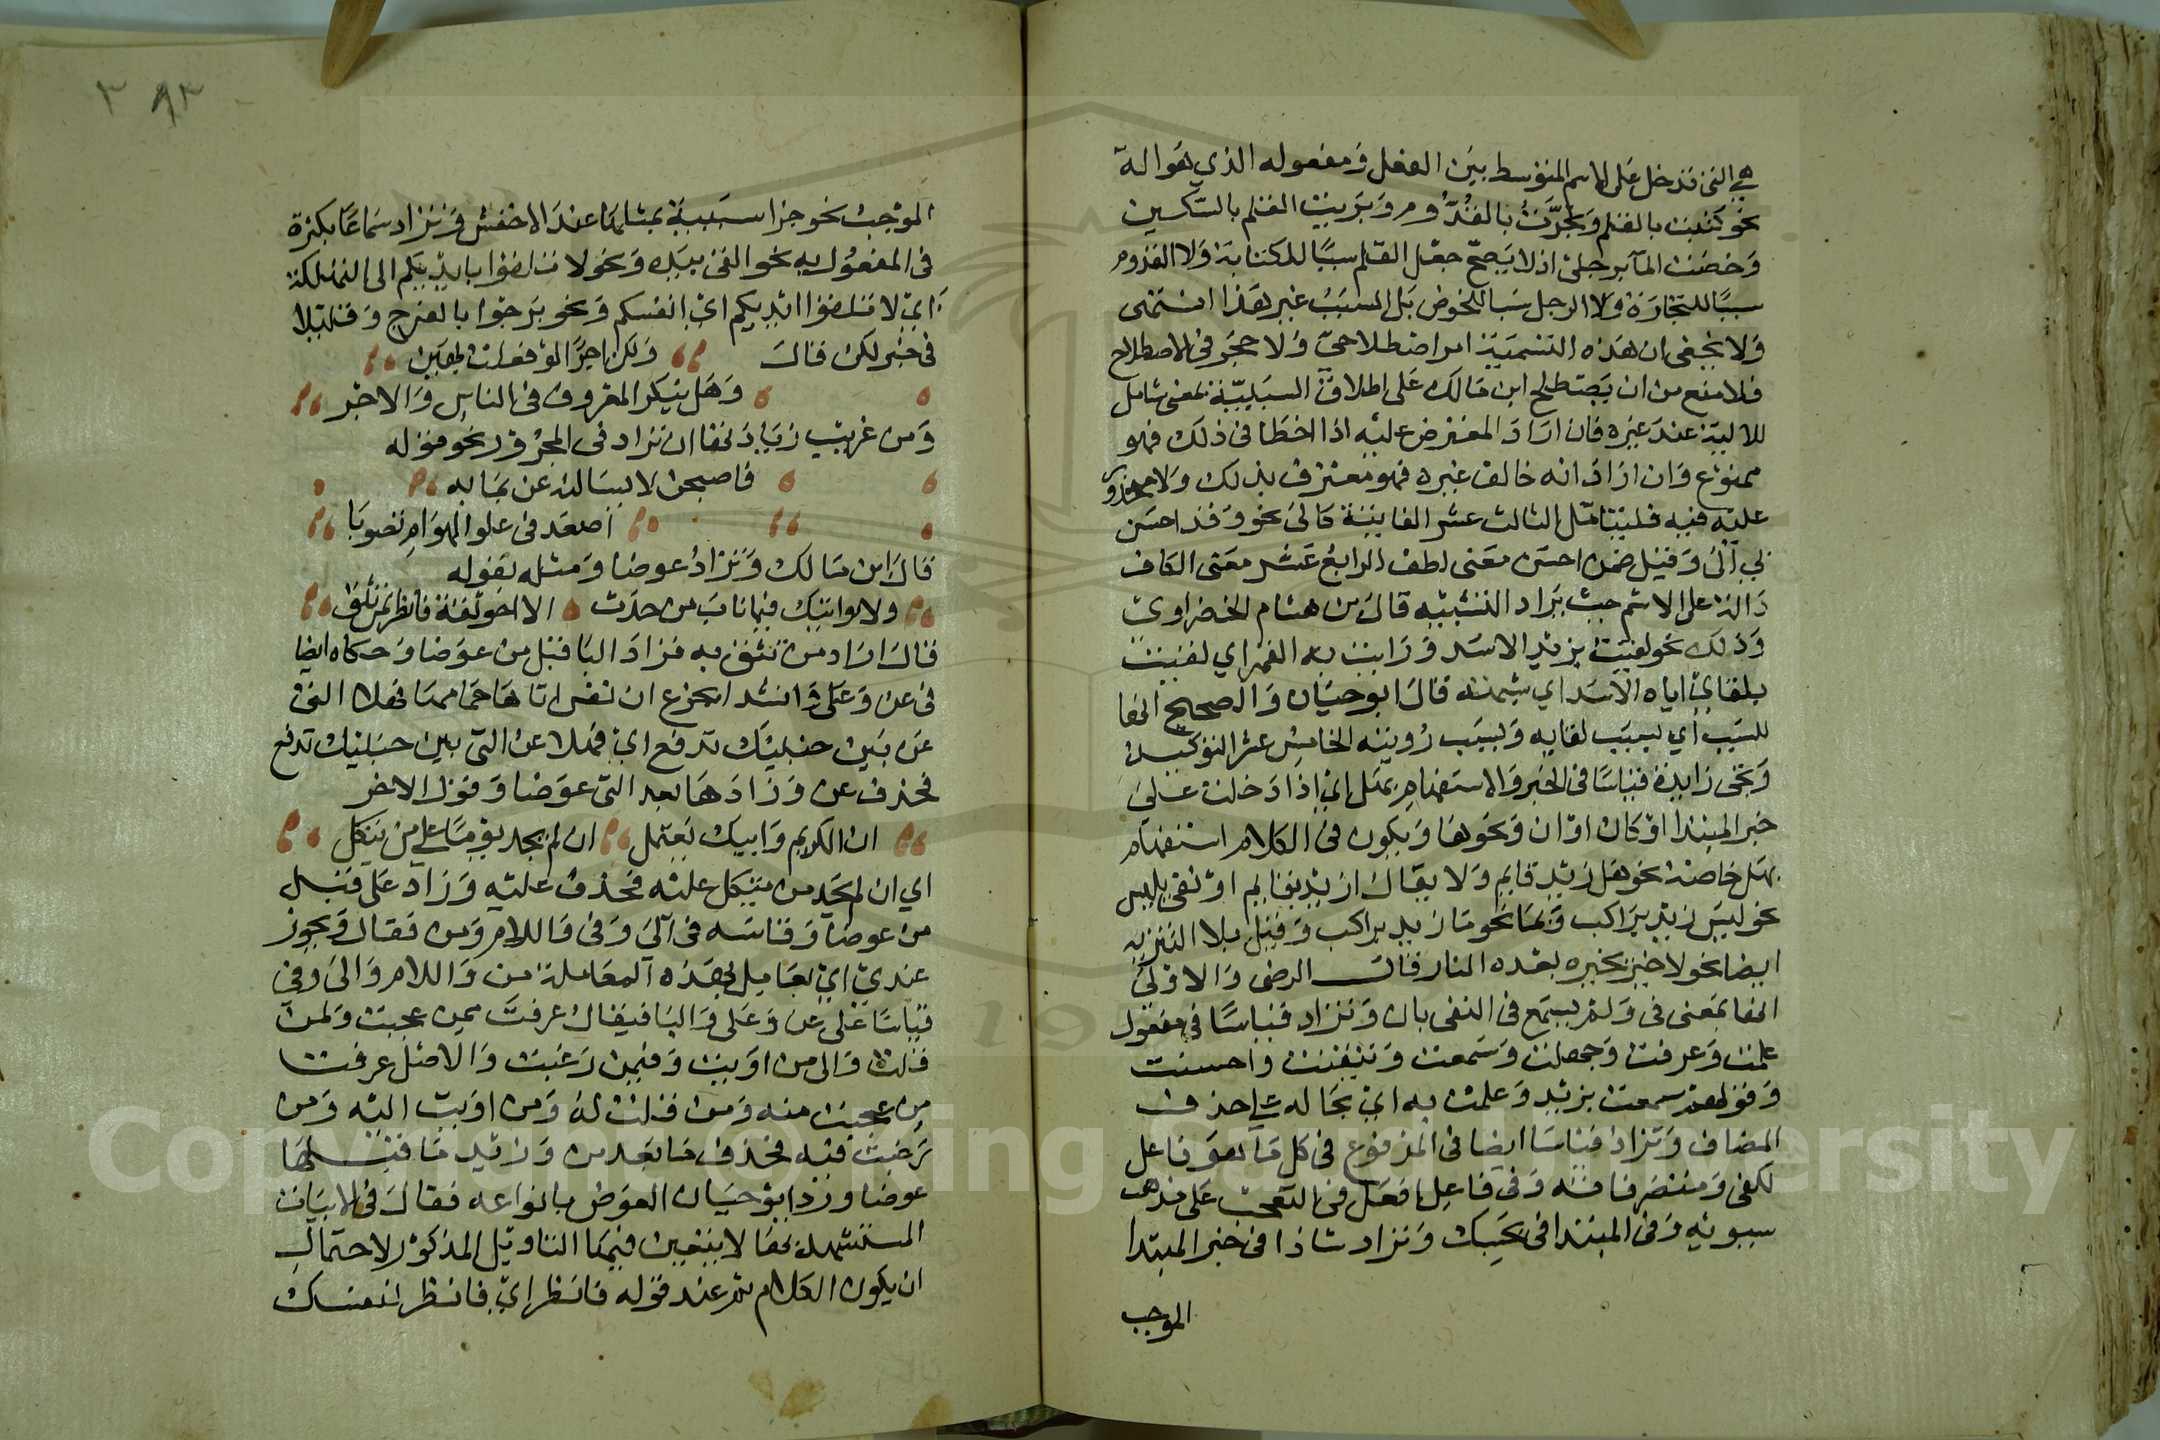 هي التي تدخل على الاسم المتوسط بين الفعل ومفعوله الذي هو الة
نحو كتبت بالقلم ونجرت بالقدوم وبريت القلم بالسكين
وخضت الماء برجلي اذ لا يصح جعل القلم سببا للكتابة ولا القدوم
سببا للنجارة ولا الرجل سببا للخوض بل السبب غير هذا انتهى
ولا يخفى ان هذه التسمية امر اصطلاحي ولا حجر في الاصطلاح
فلا منع من ان يصطلح ابن مالك على اطلاق السببية بمعنى شامل
للالية عند غيره فان اراد المعترض عليه اذا اخطا في ذلك فهو
ممنوع وان اراد انه خالف غيره فهو معترف بذلك ولا محذور
عليه فيه فليتامل الثالث عشر الغاية كالى نحو وقد احسن
بي اي الي وقيل ضمن احسن معنى لطف الرابع عشر معنى الكاف
دالة على الاسم حيث يراد التشبيه قال بن هشام الخضراوي
وذلك نحو لقيت بزيد الاسد ورايت به القمر اي لقيت
بلقاي اياه الاسد اي شبهته قال ابو حيان والصحيح انها
للسبب اي بسبب لقايه وبسبب رويته الخامس عشر التوكيد
وتجى زايدة قياسا في الخبر والاستفهام بهل اي اذا دخلت على
خبر المبتدا او كان او ان ونحوها ويكون في الكلام استفهام
بهل خاصة نحو هل زيد بقايم ولا يقال ازيد بقايم او نفي بليس
نحو ليس زيد براكب وبما نحو ما زيد براكب وقيل بلا التبرية
ايضا نحو لا خير بخير بعده النار قال الرضى والاولى
انها بمعنى في ولم يسمع في النفي بان وتزاد قياسا في مفعول
علمت وعرفت وجهلت وسمعت وتيقنت واحسست
وقولهم سمعت بزيد وعلمت به اي بحاله على حذف
المضاف وتزاد قياسا ايضا في المرفوع في كل ما هو فاعل
لكفى ومتصرفاته وفي فاعل افعل في التعجب على مذهب
سيبويه وفي المبتدا في بحسبك وتزاد شاذا في خبر المبتدا
الموجب
الموجب نحو جزا سيية بمثلها عند الاخفش وتزاد سماعا بكثرة
في المفعول به نحو القى بيده ونحو لا تلقوا بايديكم الى التهلكة
اي لا تلقوا ايديكم اي انفسكم ونحو يرجوا بالفرج وقليلا
في خبر لكن قال ولكن اجرا لو فعلت بهين
وهل ينكر المعروف في الناس والاجر
ومن غريب زيادتها ان تزاد في المجرور نحو قوله
فاصبحن لا يسالنه عن بما به
اصعد في علو الهوا ام تصوبا
قال ابن مالك وتزاد عوضا ومثله بقوله
ولا يواتيك فيما ناب من حدث الا اخو ثقة فانظر بمن تثق
قال اراد من تثق به فزاد البا قبل من عوضا وحكاه ايضا
في عن وعلى وانشد اتجزع ان نفس اتاها حمامها فهلا التي
عن بين جنبيك تدفع اي فهلا عن التي بين جنبيك تدفع
فحذف عن وزادها بعد التي عوضا وقول الاخر
ان الكريم وابيك يعتمل ان لم يجد يوما على من يتكل
اي ان لم يجد من يتكل عليه فحذف عليه وزاد على قبل
من عوضا وقاسه في الى وفي واللام ومن فقال ويجوز
عندي اي يعامل بهذه المعاملة من واللام والى وفي
قياسا على عن وعلى والبا فيقال عرفت ممن عجبت ولمن
قلت والى من اويت وفيمن رغبت والاصل عرفت
من عجبت منه ومن قلت له ومن اويت اليه ومن
رغبت فيه فحذف ما بعد من وزيد ما قبلها
عوضا ورد ابو حيان العوض بانواعه فقال في الابيات
المستشهد بها لا يتعين فيها التاويل المذكور لاحتمال
ان يكون الكلام تم عند قوله فانظر اي فانظر لنفسك